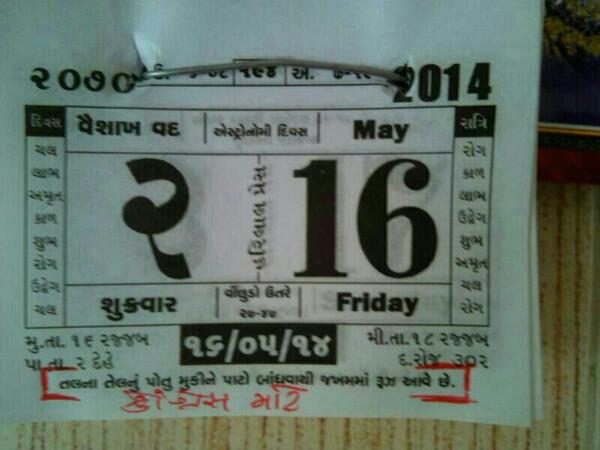 ૨૦૭૦ ૧૯૪ અ. 2014
દિવસ વૈશાખ વદ એસ્ટ્રોનોમી દિવસ May રાત્રિ
ચલ
લાભ
અમૃત
કાળ
શુભ
રોગ
ઉદ્વેગ
ચલ
૨
હરિલાલ પ્રેસ
16
રોગ
કાળ
લાભ
ઉદ્વેગ
શુભ
અમૃત
ચલ
રોગ
શુક્રવાર વીંછુડો ઉતરે Friday
૨૦-૪૦
મુ.તા. ૧૬ રજ્જબ ૧૬/૦૫/૧૪ મી.તા. ૧૮ રજ્જબ
પા.તા. ૨ દેહે દ.રોજ ૩૦૨
તલના તેલનું પોતુ મુકીને પાટો બાંધવાથી જખમમાં રૂઝ આવે છે.
કોંગ્રેસ માટે